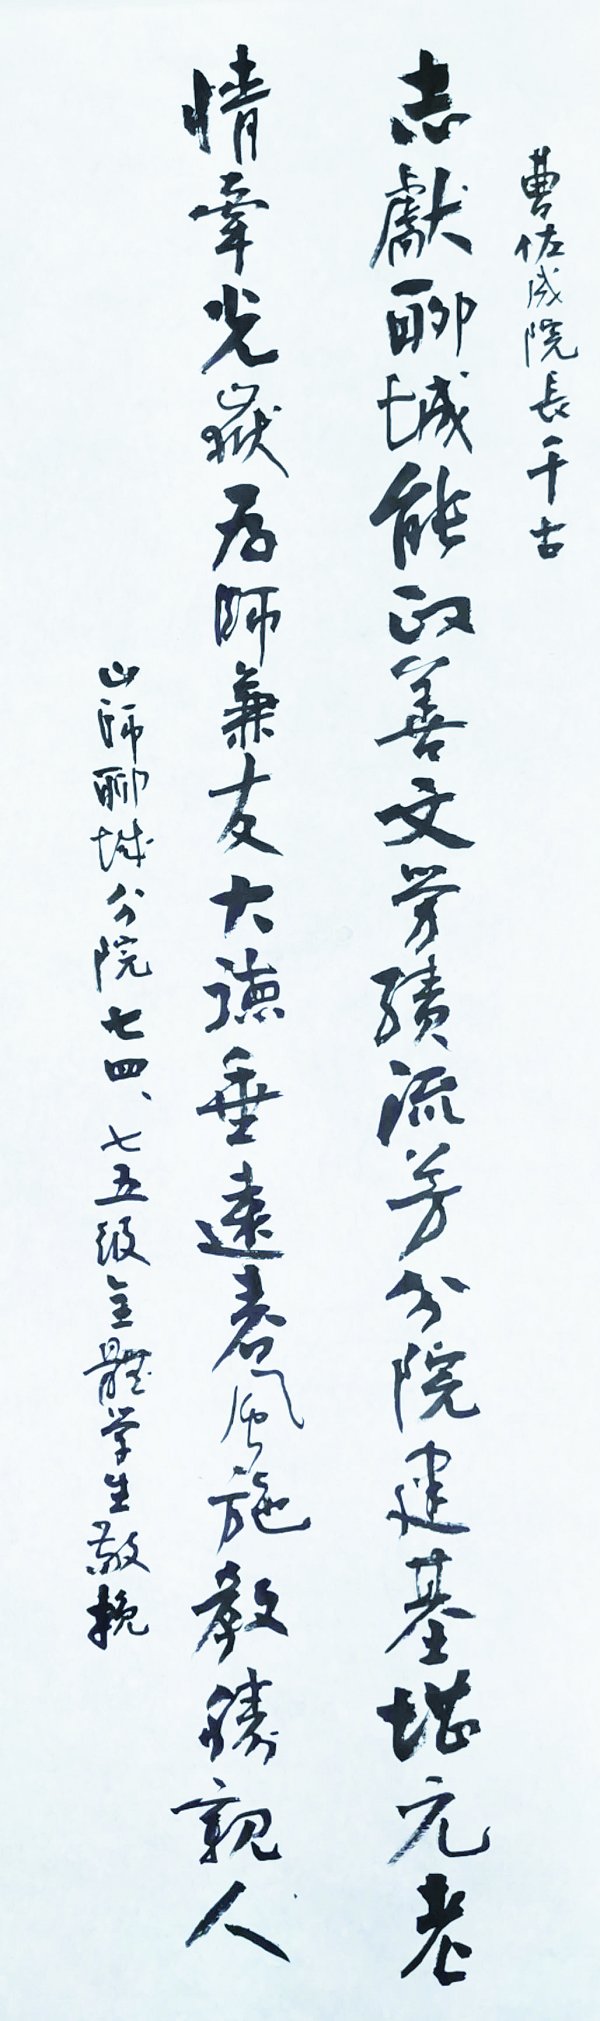 曹佐成院長千古
志獻聊城能政善文勞績流芳分院建基堪元老
情牽光嶽為師兼友大德垂遠春風施教勝親人
山師聊城分院七四、七五級全體学生敬挽